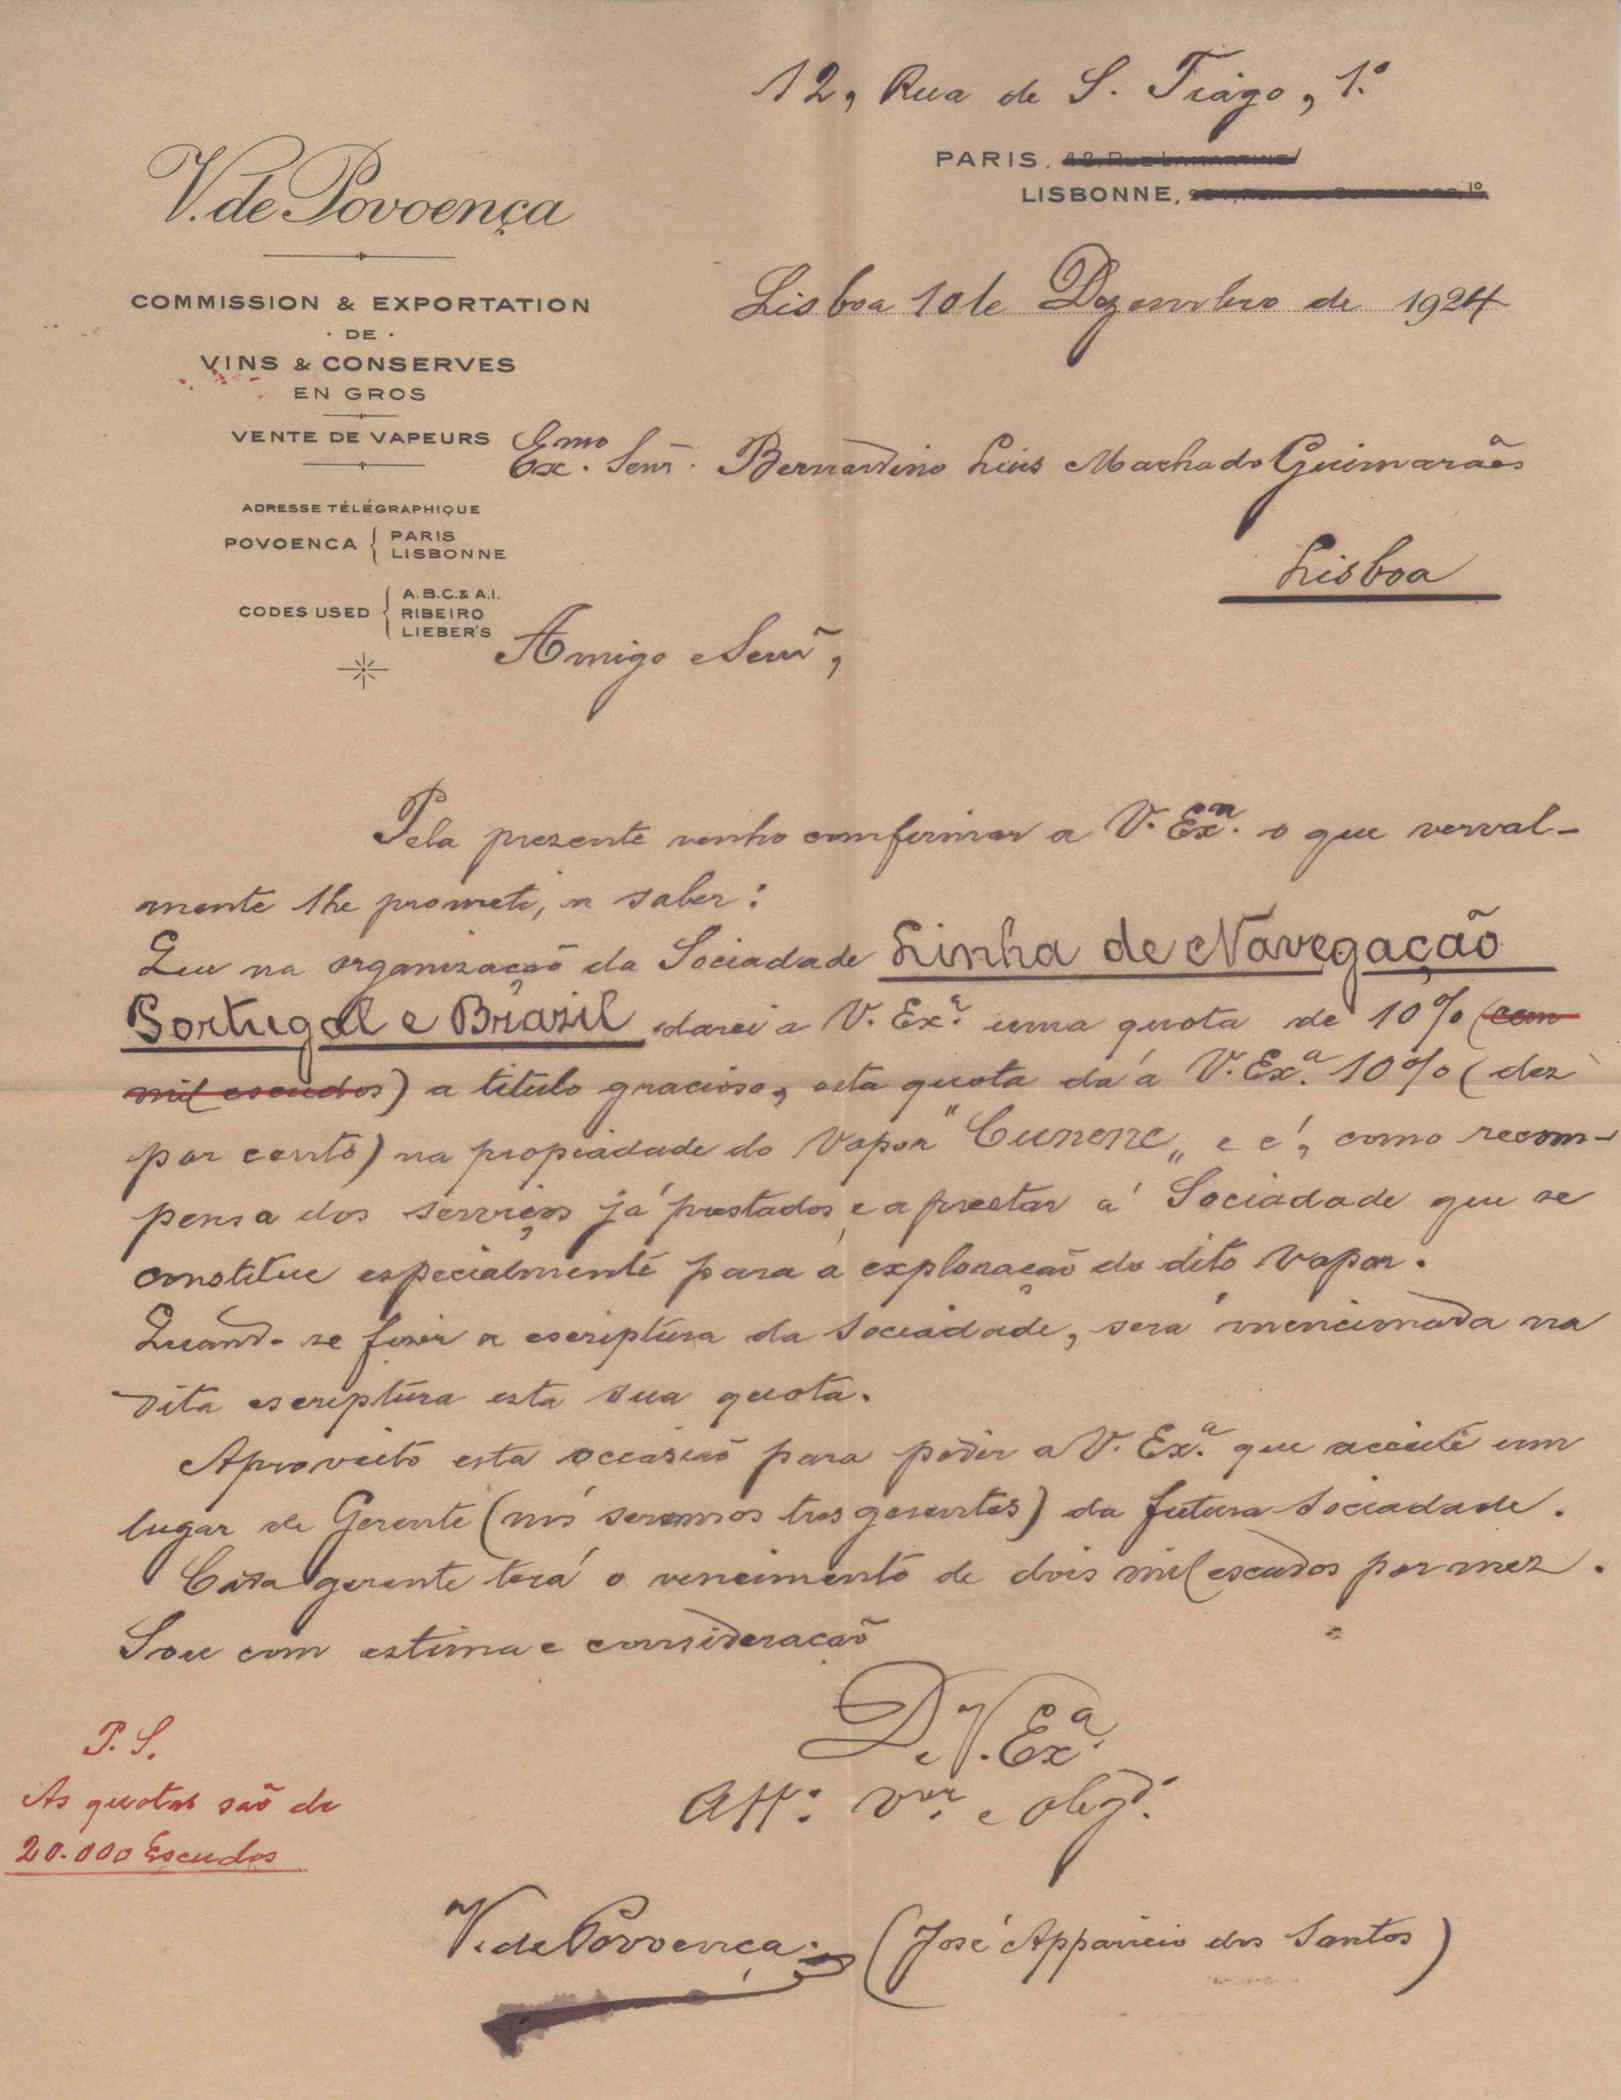 12, Rua de S. Tiago, 1.º
V. de Povoença
PARIS, 42, RUE LAMARTINE
LISBONNE, 1º
COMMISSION & EXPORTATION
· DE ·
VINS & CONSERVES
EN GROS
VENTE DE VAPEURS
ADRESSE TÉLÉGRAPHIQUE
POVOENCA { PARIS
LISBONNE
CODES USED { A.B.C. & A.I.
RIBEIRO
LIEBER'S
Lisboa 10 de Dezembro de 1924
Exmo. Senr. Bernardino Luis Machado Guimarães
Lisboa
Amigo e Senr,
Pela prezente venho comfirmar a V. Exª. o que verval-
mente lhe prometi, a saber:
Que na organização da Sociadade Linha de Navegação
Portugal e Brazil darei a V. Exª. uma quota de 10% (cem
mil escudos) a titulo gracioso, esta quota dá a V. Exª. 10% (dez
por cento) na propiadade do Vapor "Cunene" e é, como recom-
pensa dos serviços já prestados e a prestar á Sociadade que se
constitue especialmente para a exploração do dito Vapor.
Quando se fizer a escriptura da Sociadade, será mencionada na
dita escriptura esta sua quota.
Aproveito esta occasião para pedir a V. Exª. que acceite um
lugar de Gerente (nós seremos tres gerentes) da futura Sociadade.
Cada gerente terá o vencimento de dois mil escudos por mez.
Sou com estima e consideração
De V. Exª.
Attº. Vor. e obgdº.
V. de Povoença. (José Apparicio dos Santos)
P. S.
As quotas são de
20.000 Escudos